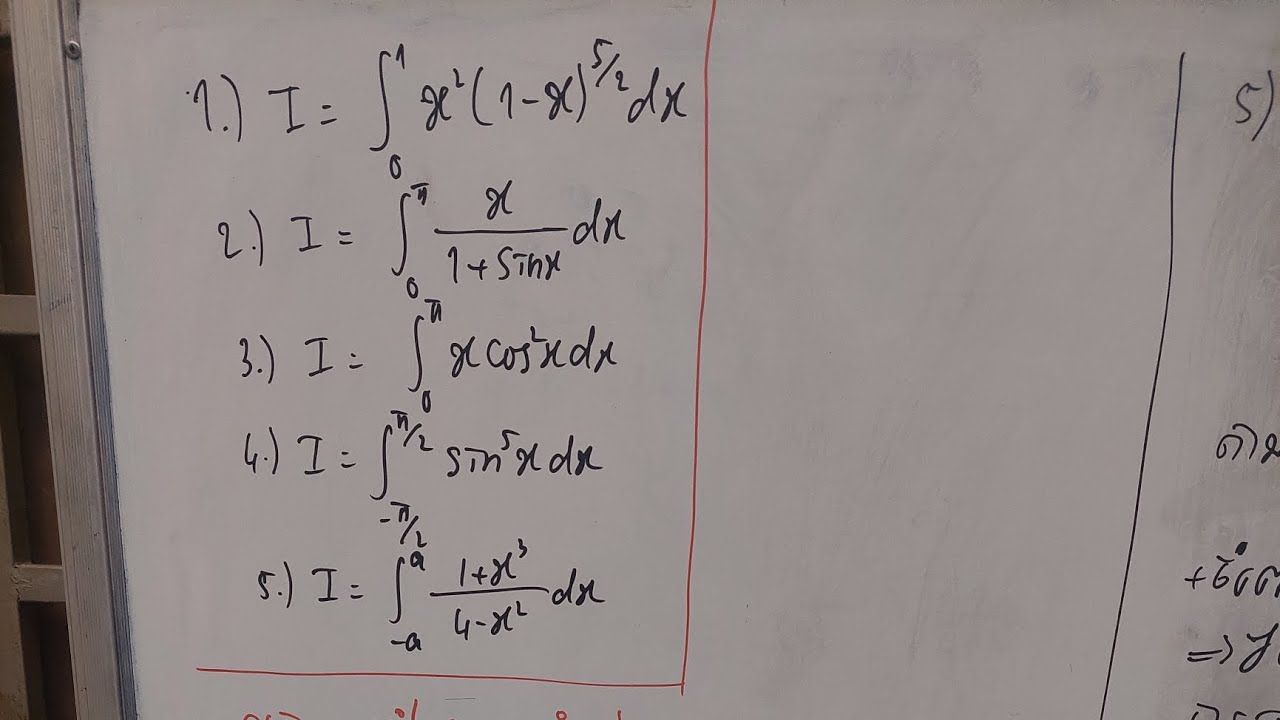 1.) I = ∫₀¹ x²(1-x)^5/2 dx
2.) I = ∫₀^π x/(1+sinx) dx
3.) I = ∫₀^π x cos²x dx
4.) I = ∫_{-π/2}^{π/2} sin⁵x dx
5.) I = ∫_{-a}^{a} (1+x³)/(4-x²) dx
5)